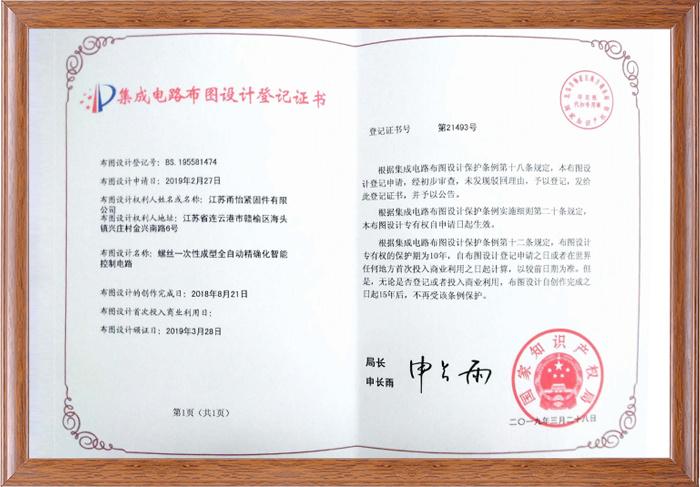 集成电路布图设计登记证书
布图设计登记号：BS. 195581474
布图设计申请日：2019年2月27日
布图设计权利人姓名或名称：江苏甬怡紧固件有限
公司
布图设计权利人地址：江苏省连云港市赣榆区海头
镇兴庄村金兴南路6号
布图设计名称：螺丝一次性成型全自动精确化智能
控制电路
布图设计的创作完成日：2018年8月21日
布图设计首次投入商业利用日：
布图设计颁证日：2019年3月28日
第1页（共1页）
登记证书号 第21493号
根据集成电路布图设计保护条例第十八条规定，本布图设
计登记申请，经初步审查，未发现驳回理由，予以登记，发给
此登记证书，并予以公告。
根据集成电路布图设计保护条例实施细则第二十条规定，
本布图设计专有权自申请日起生效。
根据集成电路布图设计保护条例第十二条规定，布图设计
专有权的保护期为10年，自布图设计登记申请之日或者在世界
任何地方首次投入商业利用之日起计算，以较前日期为准。但
是，无论是否登记或者投入商业利用，布图设计自创作完成之
日起15年后，不再受该条例保护。
局长
申长雨
申长雨
国家知识产权局
二〇一九年三月二十八日